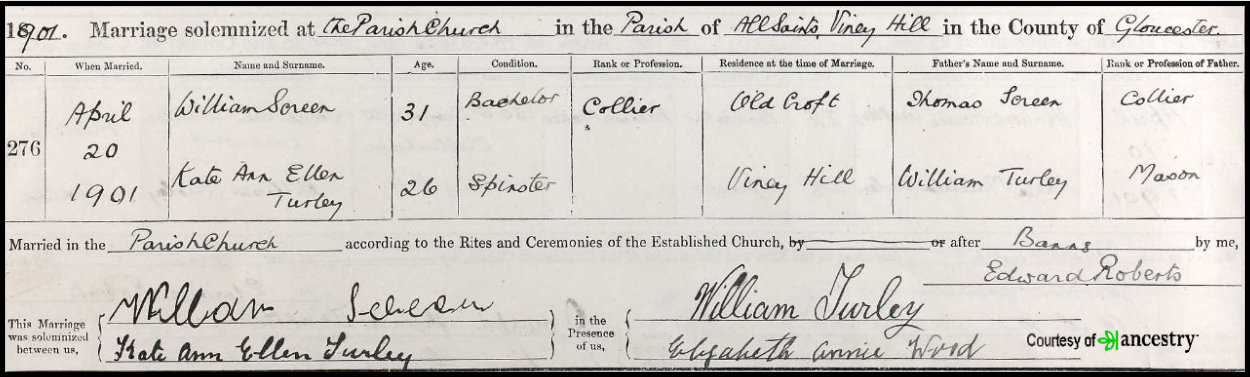 1901. Marriage solemnized at the Parish Church in the Parish of All Saints, Viney Hill in the County of Gloucester.
No. When Married. Name and Surname. Age. Condition. Rank or Profession. Residence at the time of Marriage. Father's Name and Surname. Rank or Profession of Father.
276 April 20 1901 William Screen 31 Bachelor Collier Old Croft Thomas Screen Collier
Kate Ann Ellen Turley 26 Spinster Viney Hill William Turley Mason
Married in the Parish Church according to the Rites and Ceremonies of the Established Church, by or after Banns by me,
Edward Roberts
This Marriage was solemnized between us, William Screen in the Presence of us, William Turley
Kate Ann Ellen Turley Elizabeth Annie Wood
Courtesy of ancestry